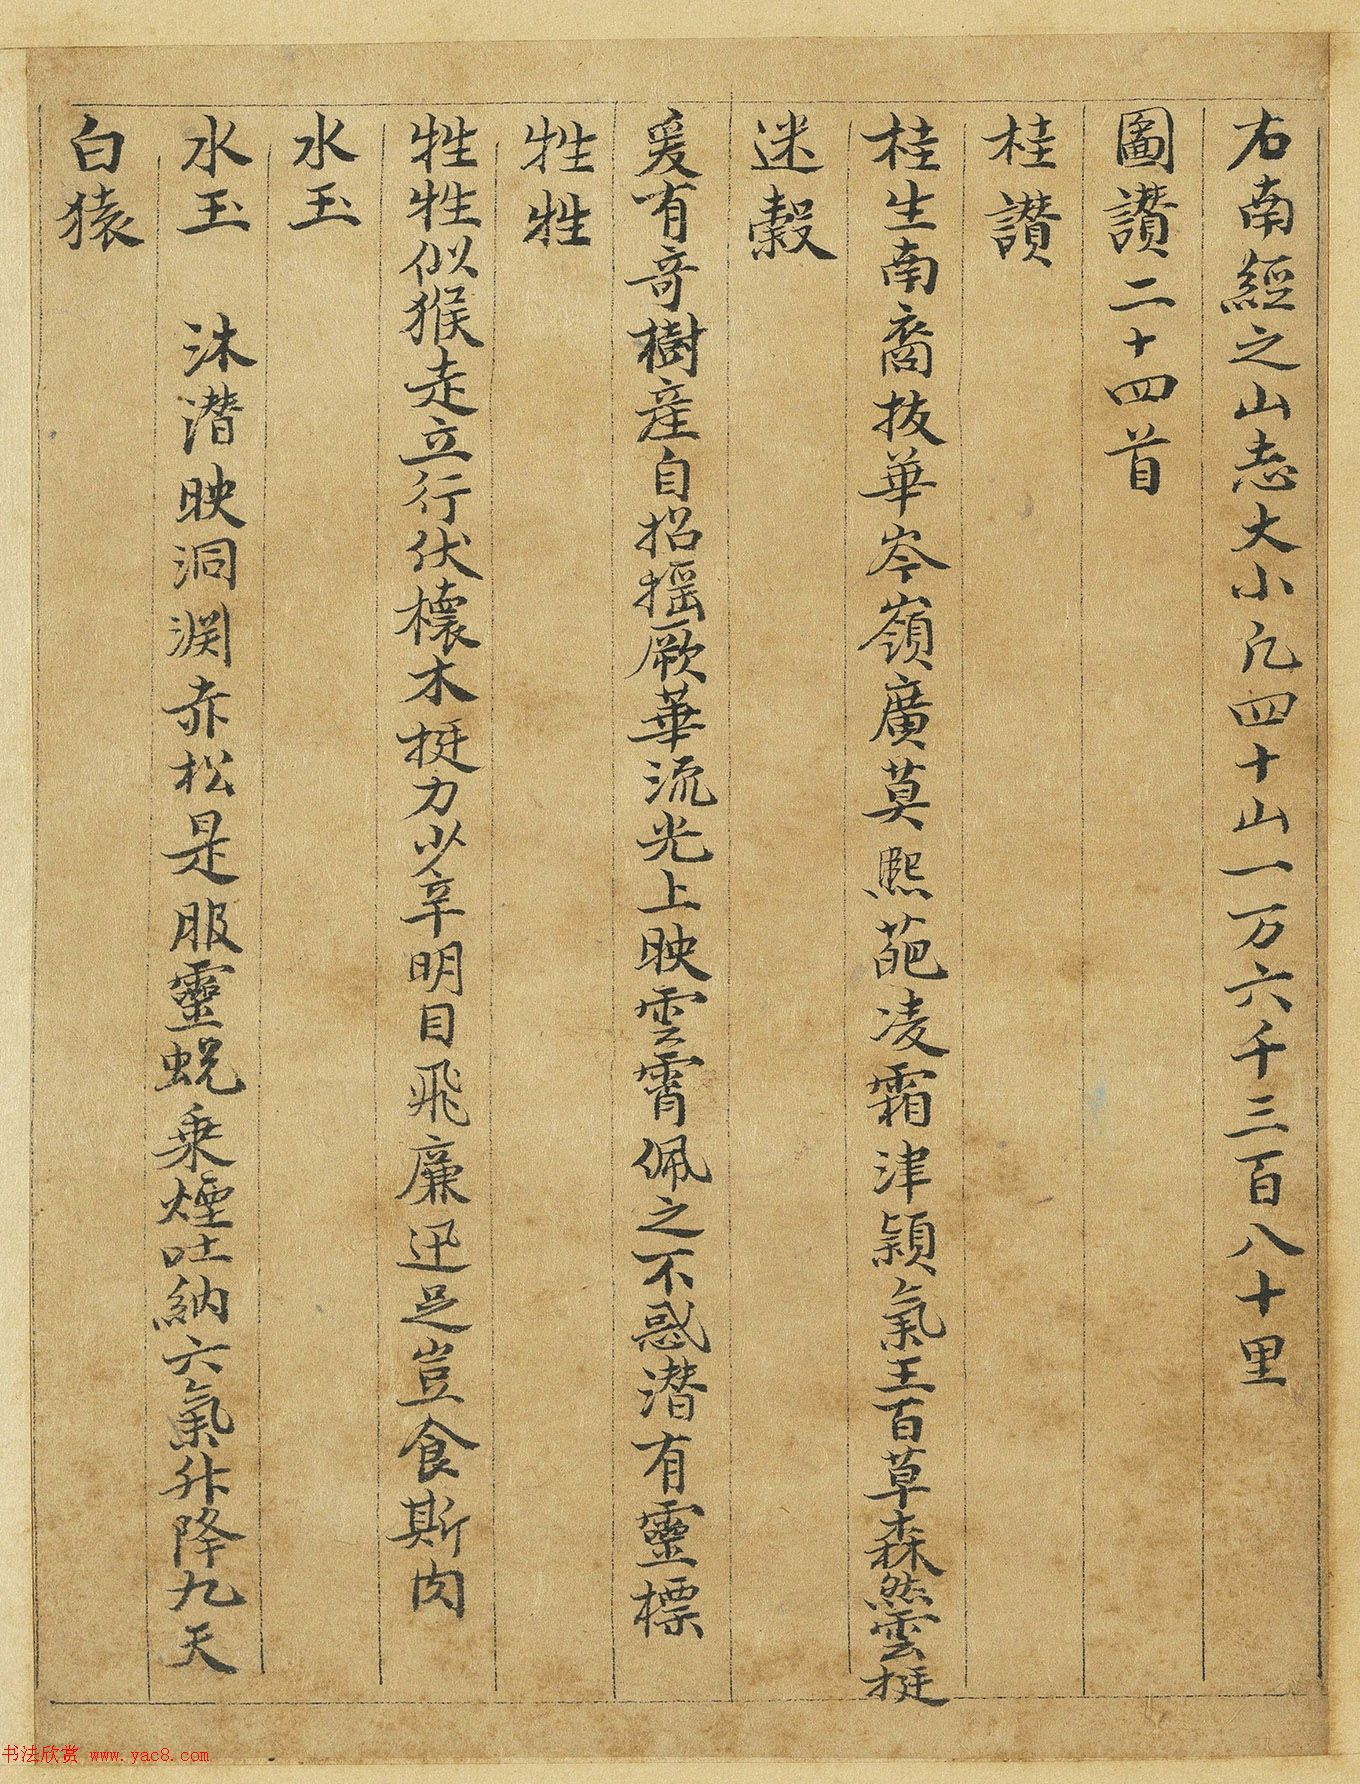 右南經之山志大小凡四十山一万六千三百八十里
圖讃二十四首
桂讃
桂生南裔拔華岑嶺廣莫熈葩凌霜津穎氣王百草森然雲挺
迷穀
爰有奇樹産自招揺厥華流光上映雲霄佩之不惑潜有靈標
狌狌
狌狌似猴走立行伏櫰木挺力少辛明目飛廉迅足豈食斯肉
水玉
水玉 沐潜映洞渊赤松是服靈蜕乗煙吐納六氣升降九天
白猿
书法欣赏 www.yac8.com